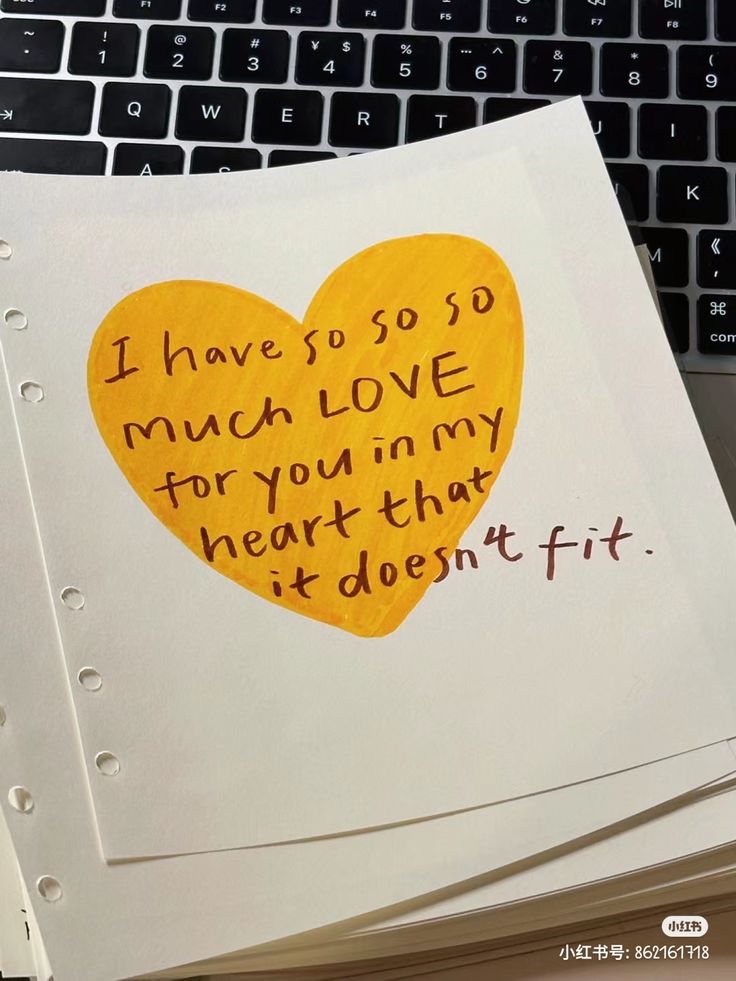 F1
F2
F3
F4
F5
F6
F7
F8
~
!
1
@
2
#
3
¥ $
4
%
5
… ^
6
&
7
*
8
(
9
Q
W
E
R
T
U
I
A
K
M
《
,
⌘
com
I have so so so
much LOVE
for you in my
heart that
it doesn't fit.
小红书
小红书号: 862161718